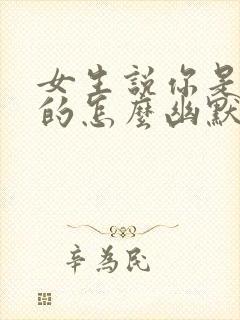 女生説你是
的怎麼幽默
辛為民